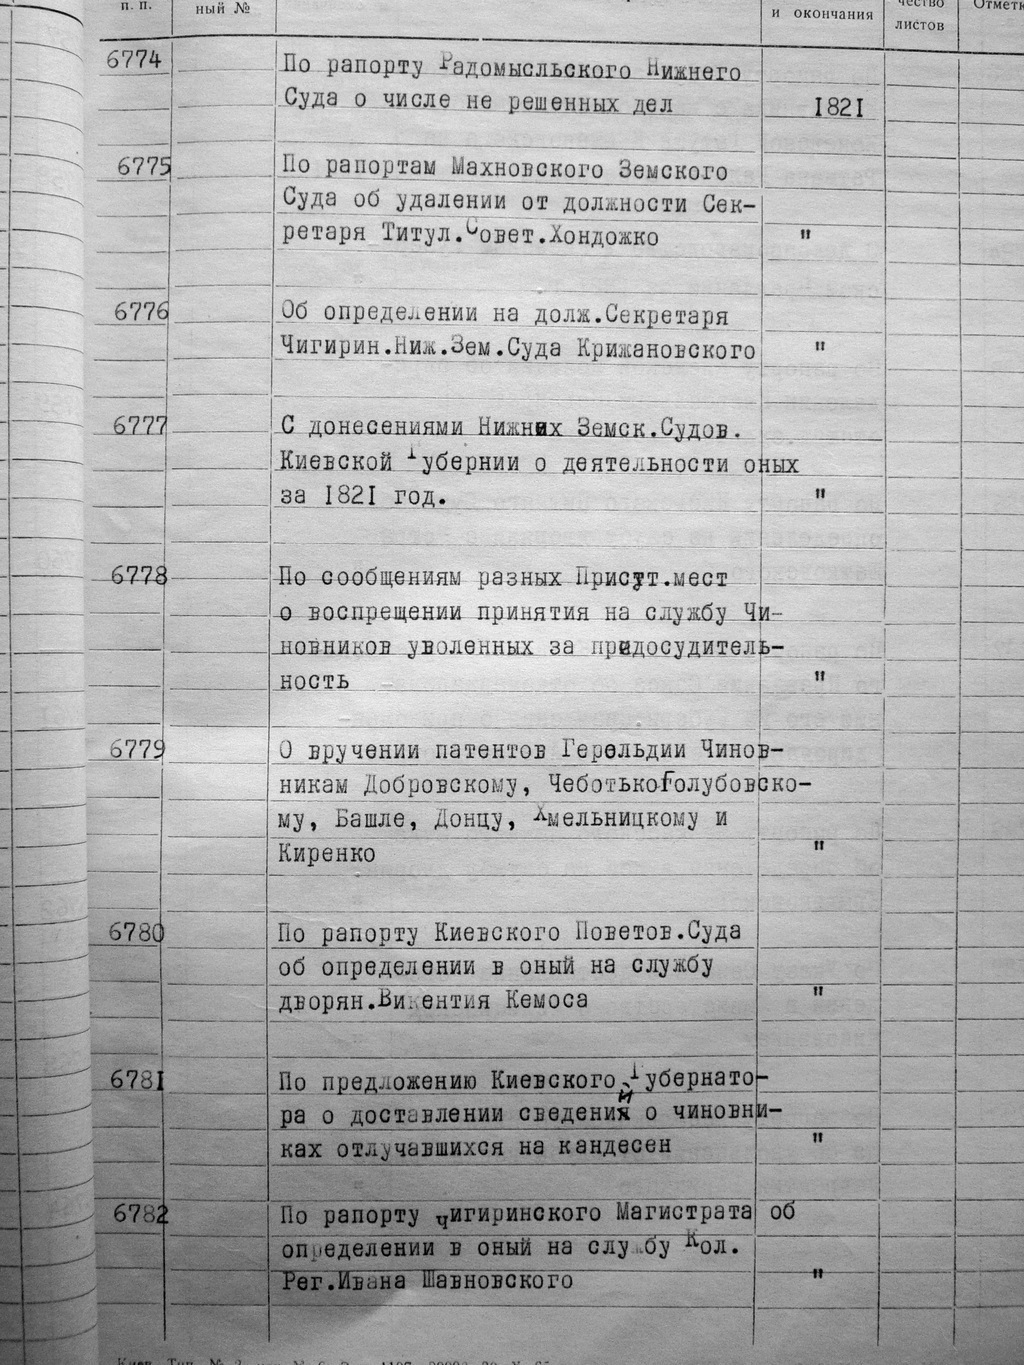 п. п.
ный №
и окончания
чество
листов
Отметк
6774
По рапорту Радомысльского Нижнего
Суда о числе не решенных дел
1821
6775
По рапортам Махновского Земского
Суда об удалении от должности Сек-
ретаря Титул.Совет.Хондожко "
6776
Об определении на долж.Секретаря
Чигирин.Ниж.Зем.Суда Крижановского "
6777
С донесениями Нижних Земск.Судов.
Киевской Губернии о деятельности оных
за 1821 год. "
6778
По сообщениям разных Присут.мест
о воспрещении принятия на службу Чи-
новников уволенных за предосудитель-
ность "
6779
О вручении патентов Герольдии Чинов-
никам Добровскому, Чеботько-Голубовско-
му, Башле, Донцу, Хмельницкому и
Киренко "
6780
По рапорту Киевского Поветов.Суда
об определении в оный на службу
дворян.Викентия Кемоса "
6781
По предложению Киевского Губернато-
ра о доставлении сведений о чиновни-
ках отлучавшихся на кандесен "
6782
По рапорту Чигиринского Магистрата об
определении в оный на службу Кол.
Рег.Ивана Шавновского "